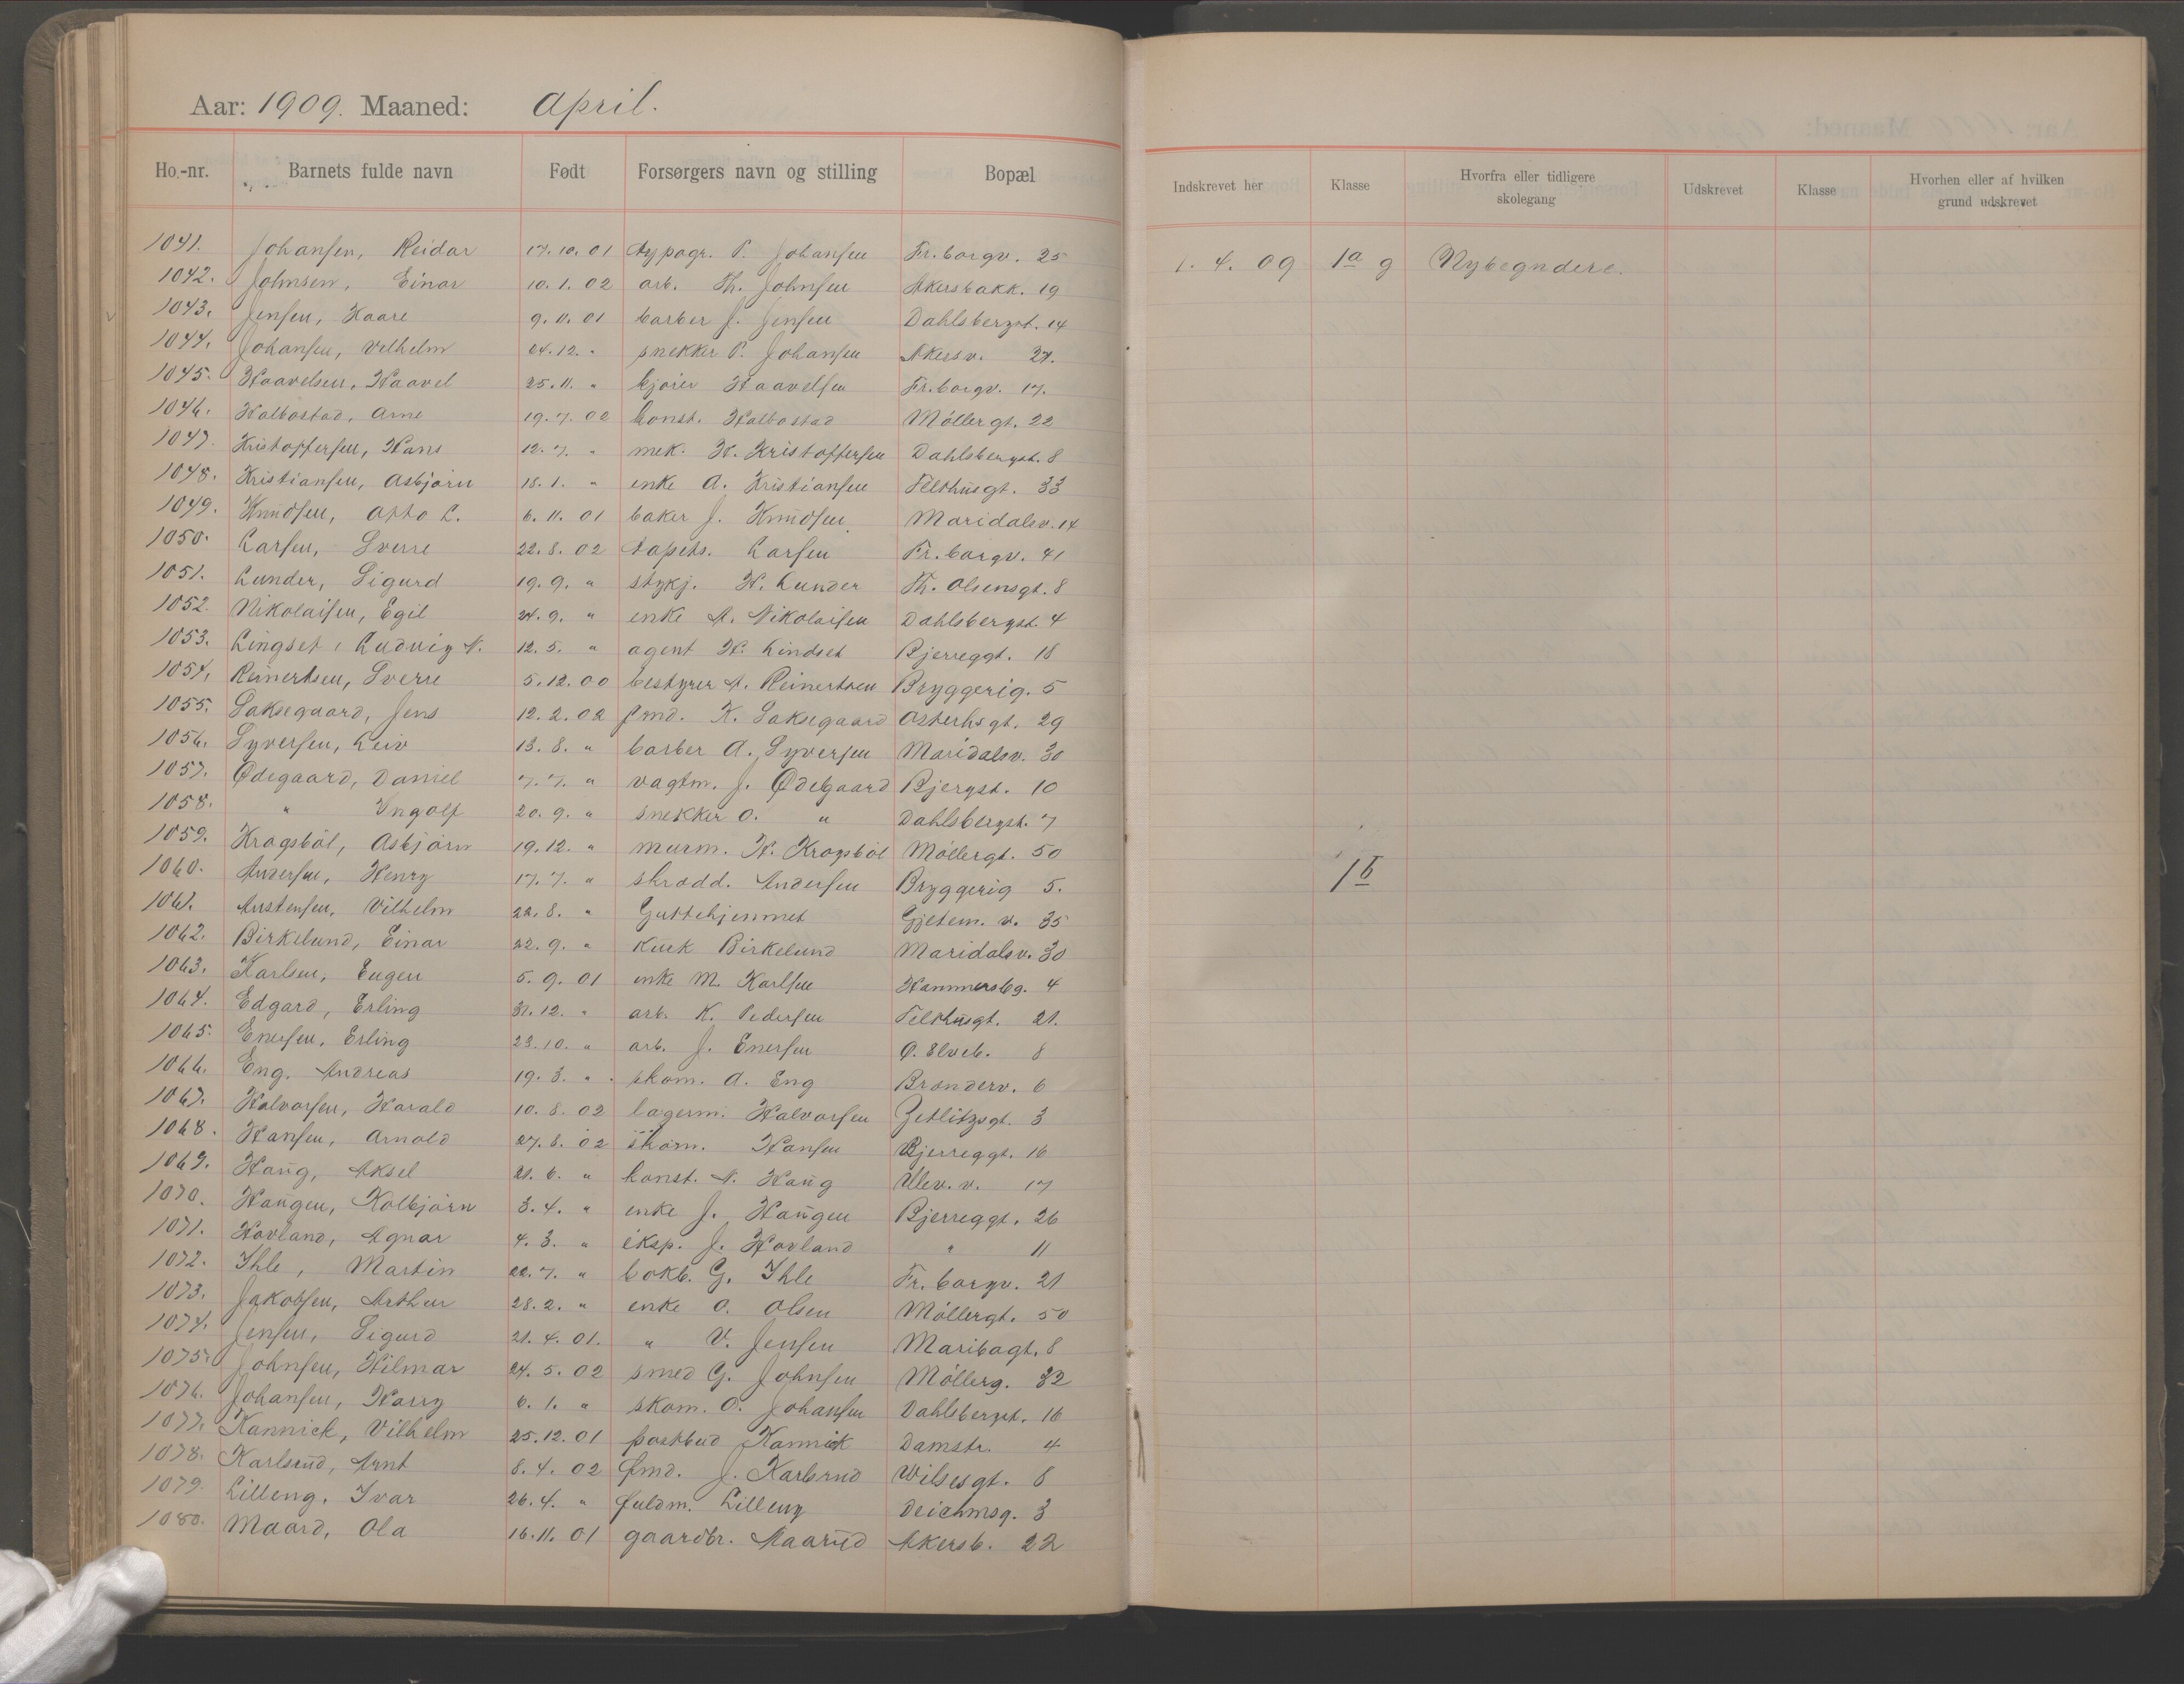 Aar: 1909. Maaned: April.
Ho.-nr. Barnets fulde navn Født Forsørgers navn og stilling Bopæl
1041. Johansen, Reidar 17.10.01 typogr. P. Johansen Fr.borgv. 25
1042. Johnsen, Einar 10.1.02 arb. Th. Johnsen Akersbakk. 19
1043. Jensen, Kaare 9.11.01 barber J. Jensen Dahlsbergst. 14
1044. Johansen, Vilhelm 24.12. " snekker P. Johansen Akersv. 27.
1045. Haavelsen, Haavel 25.11. " kjører Haavelsen Fr.borgv. 17.
1046. Holbostad, Arne 19.7.02 konst. Holbostad Möllergt. 22
1047. Kristoffersen, Hans 12.7. " mek. H. Kristoffersen Dahlsbergst. 8
1048. Kristiansen, Asbjörn 18.1. " enke A. Kristiansen Telthusgt. 33
1049. Knudsen, Otto L. 6.11.01 baker J. Knudsen Maridalsv. 14
1050. Larsen, Sverre 22.8.02 tapets. Larsen Fr.borgv. 41
1051. Lunder, Sigurd 19.9. " stykj. H. Lunder Th. Olsensgt. 8
1052. Nikolaisen, Egil 24.9. " enke A. Nikolaisen Dahlsbergst. 4
1053. Lingset, Ludvig N. 12.5. " agent H. Lindset Bjerreggt. 18
1054. Reinertsen, Sverre 5.12.00 bestyrer A. Reinertsen Bryggerig. 5
1055. Saksegaard, Jens 12.2.02 fmd. K. Saksegaard Osterhsgt. 29
1056. Syversen, Leiv 13.8. " barber A. Syversen Maridalsv. 30
1057. Ødegaard, Daniel 7.7. " vagtm. J. Ødegaard Bjergst. 10
1058. " Ingolf 20.9. " snekker O. " Dahlsbergst. 7
1059. Krogsböl, Asbjörn 19.12. " murm. H. Krogsböl Möllergt. 50
1060. Andersen, Henry 17.7. " skrædd. Andersen Bryggerig 5.
1061. Austensen, Vilhelm 22.8. " Guttehjemmet Gjetem.v. 35
1062. Birkelund, Einar 22.9. " kusk Birkelund Maridalsv. 30
1063. Karlsen, Eugen 5.9.01 enke M. Karlsen Hammersbg. 4
1064. Edgard, Erling 31.12. " arb. K. Pedersen Telthusgt. 21.
1065. Enersen, Erling 23.10. " arb. J. Enersen Ø. Elveb. 8
1066. Eng, Andreas 19.3. " skom. A. Eng Brænderv. 6
1067. Halvorsen, Harald 10.8.02 lagerm. Halvorsen Zetlitzsgt. 3
1068. Hansen, Arnold 27.8.02 skom. Hansen Bjerreggt. 16
1069. Haug, Aksel 21.6. " konst. N. Haug Ullev.v. 17
1070. Haugen, Kolbjörn 3.4. " enke J. Haugen Bjerreggt. 26
1071. Hovland, Agnar 4.3. " eksp. J. Hovland " 11
1072. Ihle, Martin 22.7. " bokb. G. Ihle Fr.borgv. 21
1073. Jakobsen, Arthur 28.2. " enke O. Olsen Möllergt. 50
1074. Jensen, Sigurd 21.4.01. " V. Jensen Maribogt. 8
1075. Johnsen, Hilmar 24.5.02 smed G. Johnsen Möllerg. 32
1076. Johansen, Harry 6.1. " skom. O. Johansen Dahlsbergst. 16
1077. Kannick, Vilhelm 25.12.01 postbud Kannick Damstr. 4
1078. Karlsrud, Arnt 8.4.02 fmd. J. Karlsrud Wilsesgt. 8
1079. Lilleng, Ivar 26.4. " fuldm. Lilleng Deichmsg. 3
1080. Maard, Ola 16.11.01 gaardbr. Maarud Akersb. 22
Indskrevet her Klasse Hvorfra eller tidligere skolegang Udskrevet Klasse Hvorhen eller af hvilken grund udskrevet
1.4.09 1a g Nybegndere.
1b